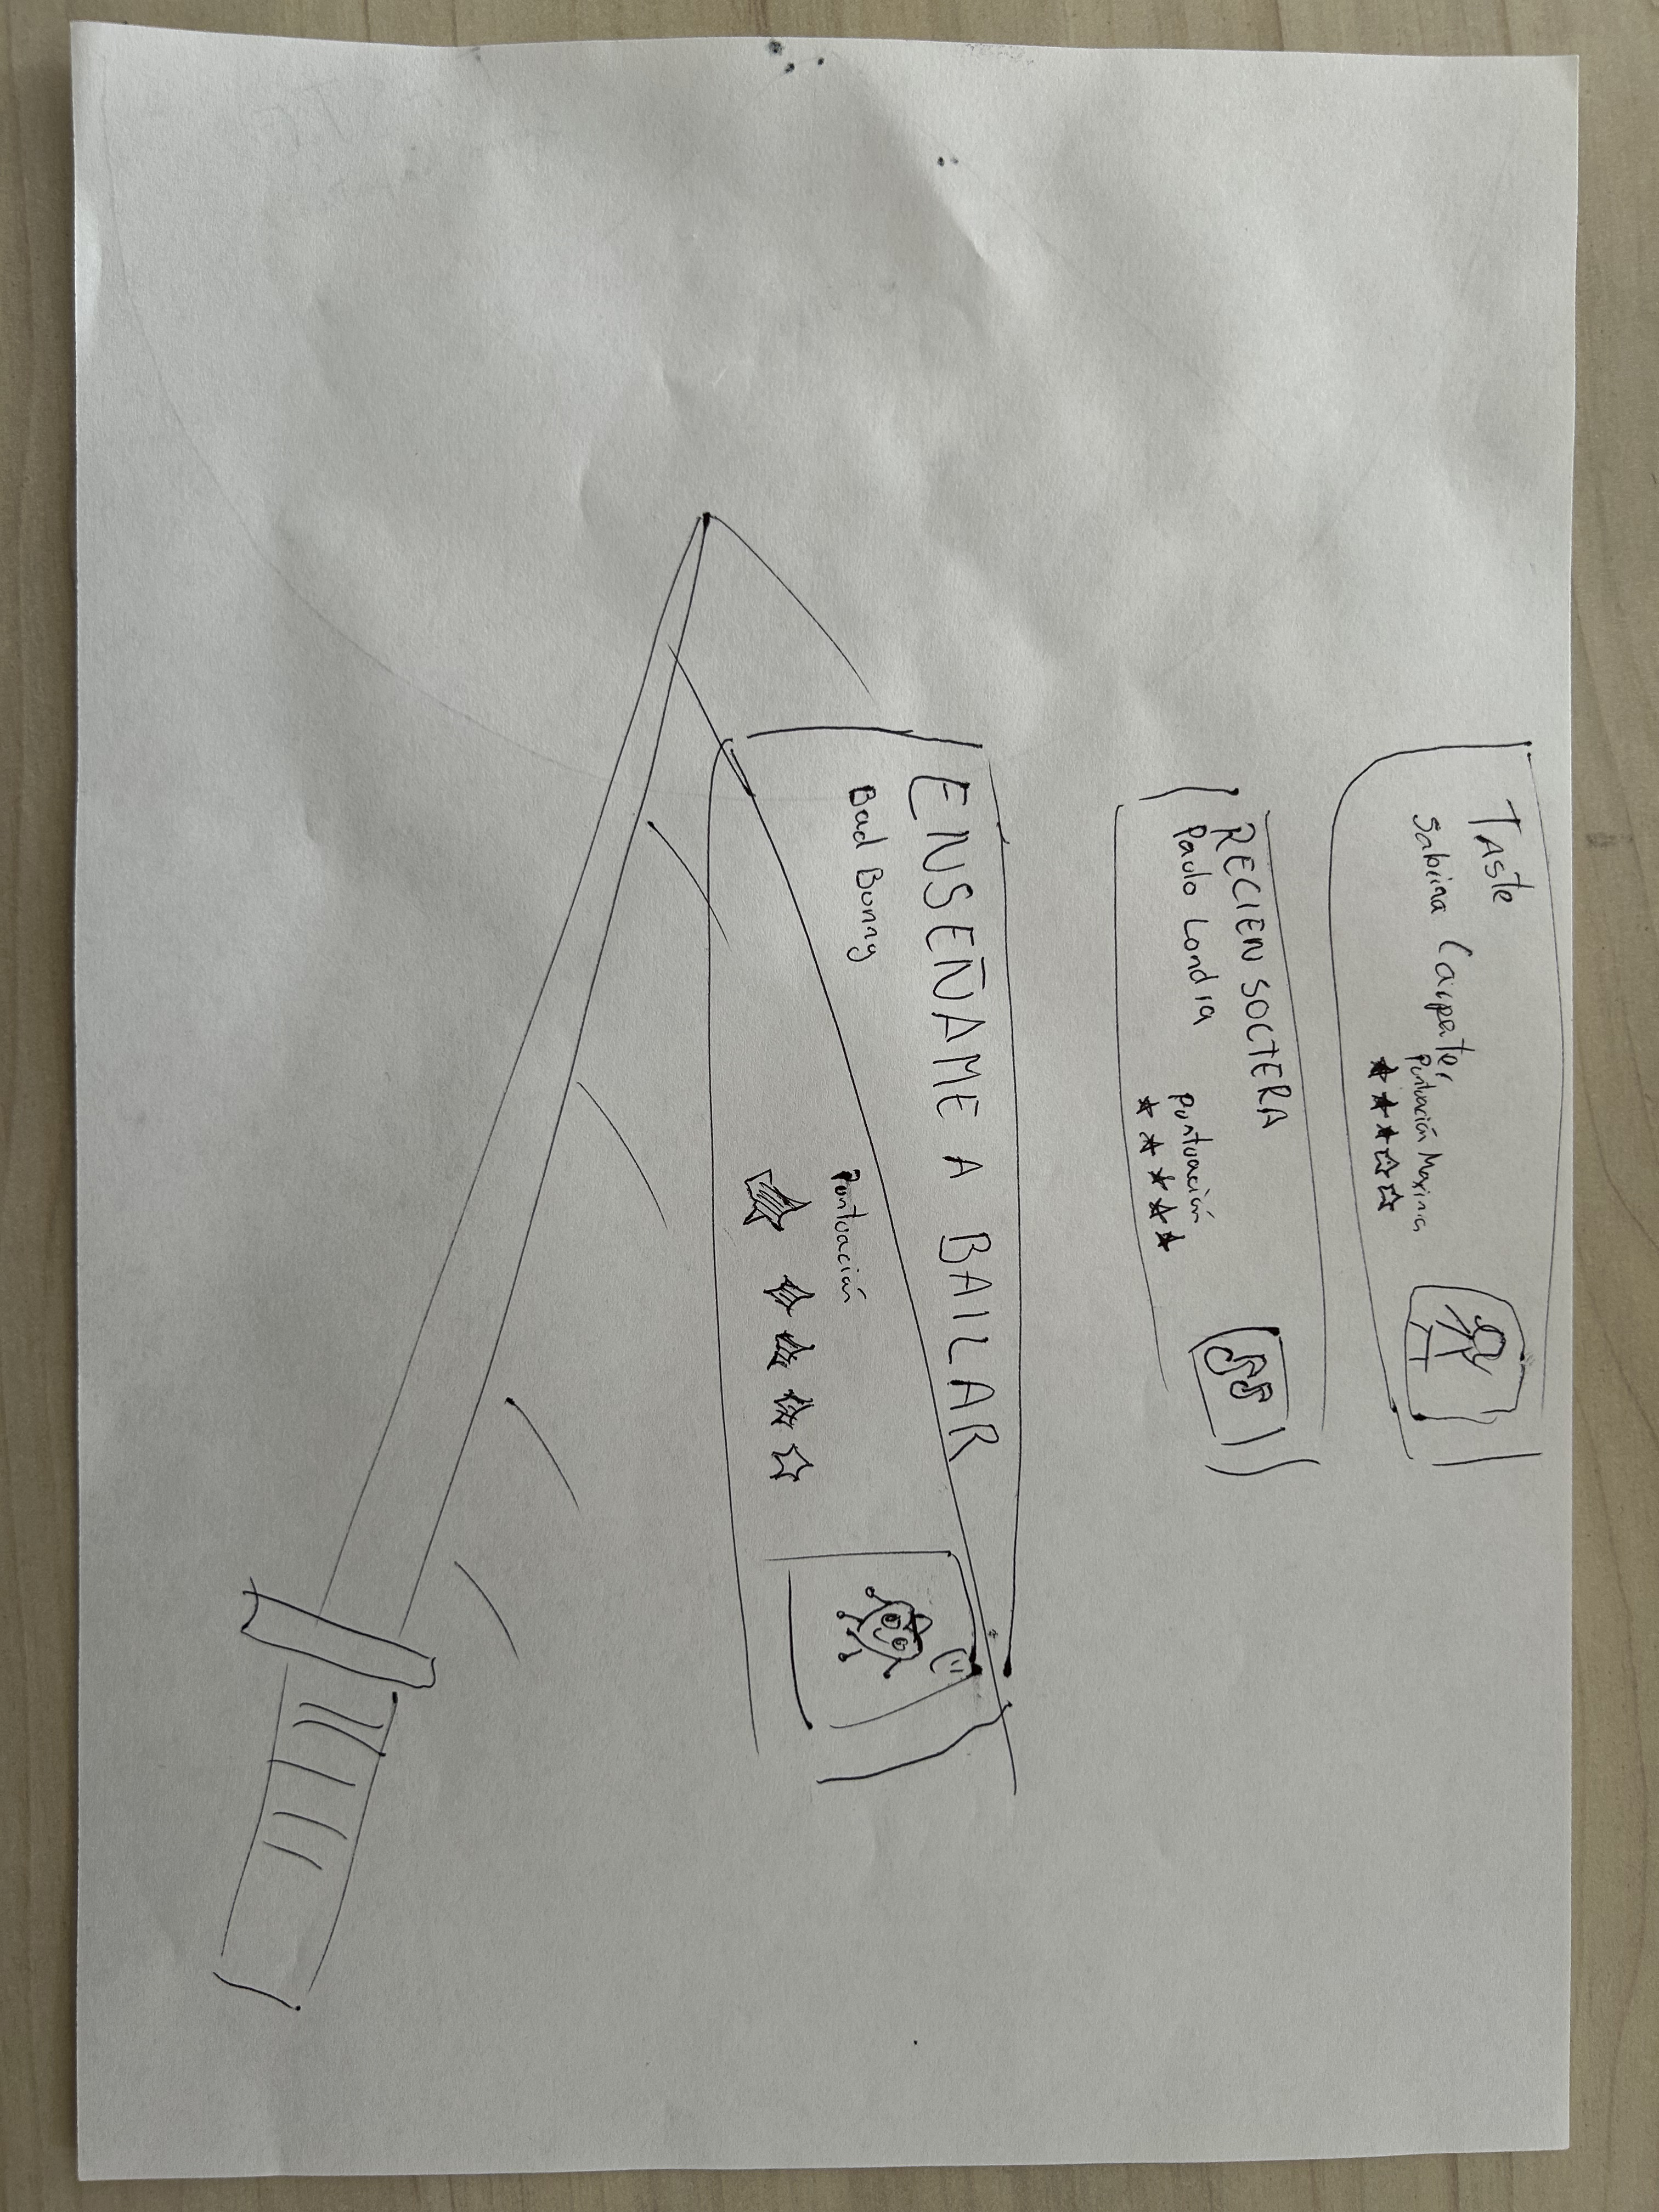 TASTE
Sabrina Carpater
Puntuación Maxima
RECIEN SOCTERA
Paulo Londra
Puntuación
ENSEÑAME A BAILAR
Bad Bunny
Puntuación